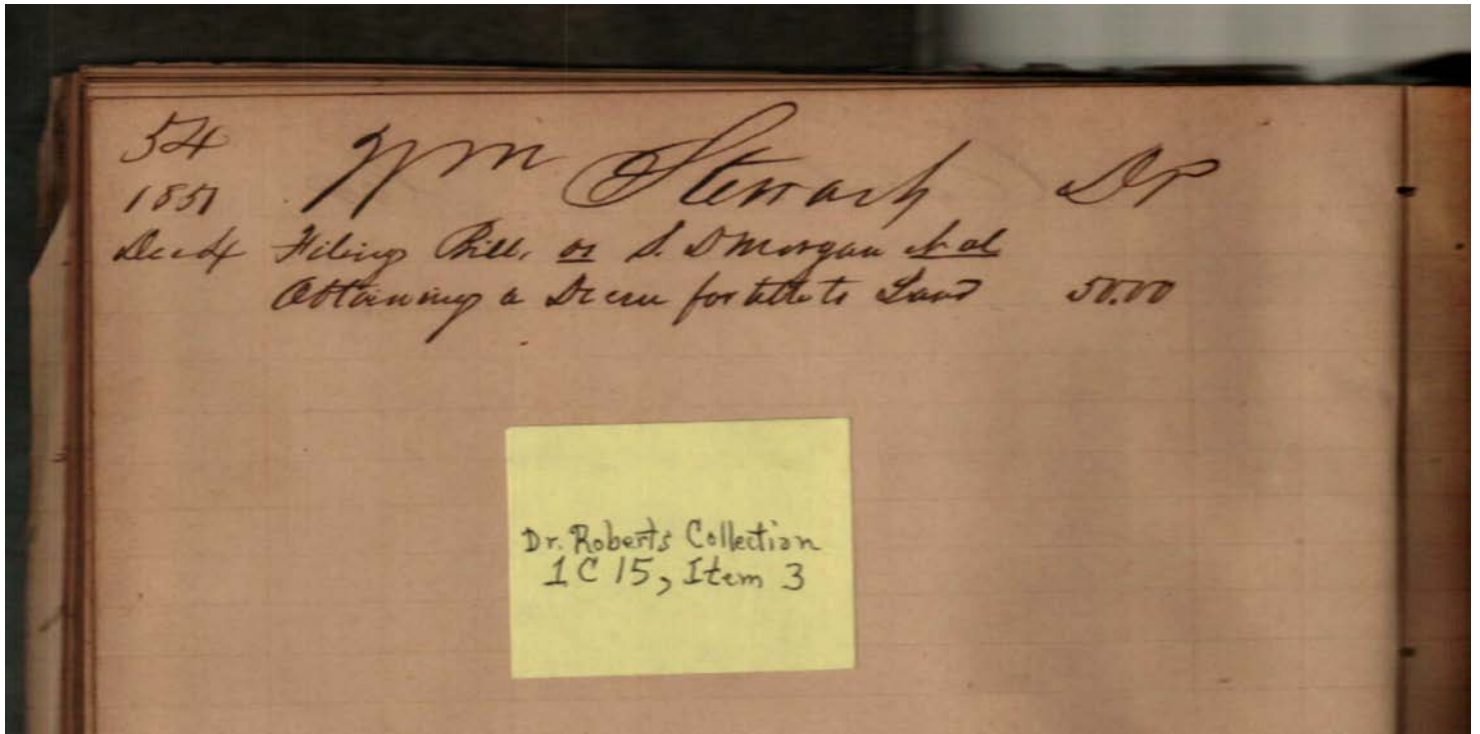 54
Wm Stewart Dr
1851
Dec 4 Filing Bill, vs S. D Morgan et al
Obtaining a Decree for title to Land 50.00
Dr. Roberts Collection
1 C 15, Item 3